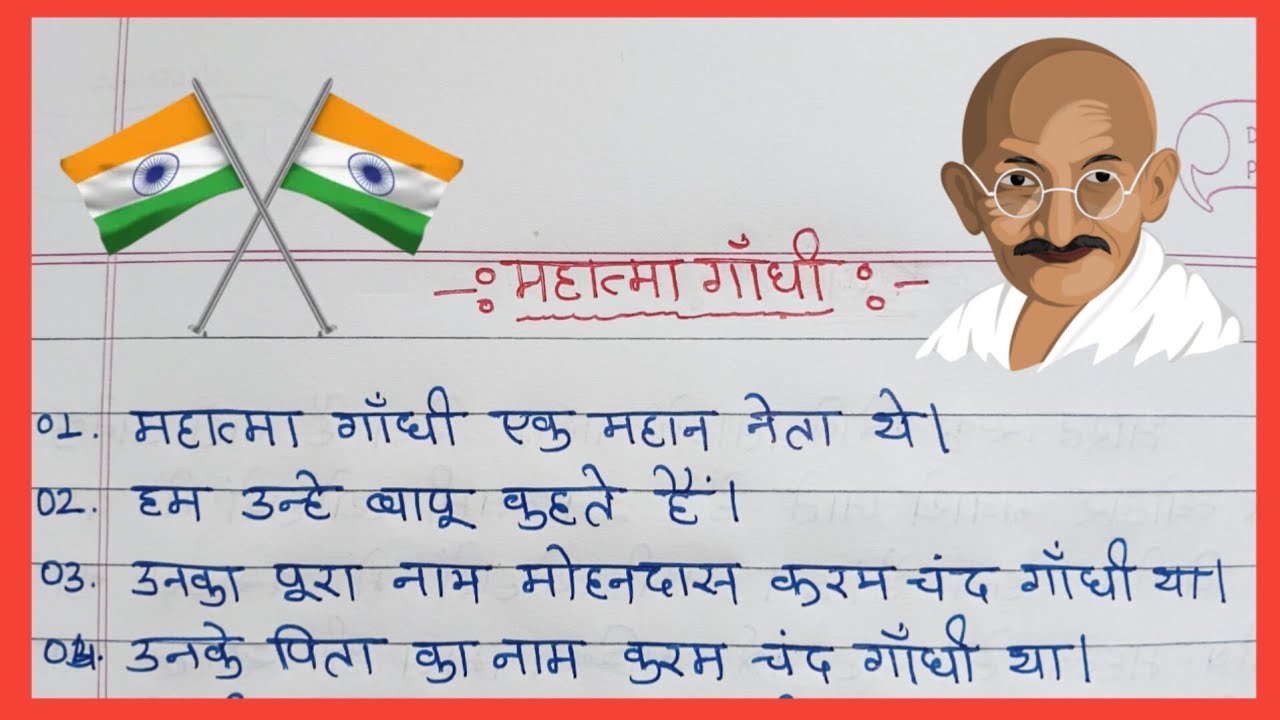 -: महात्मा गाँधी :-
01. महात्मा गाँधी एक महान नेता थे।
02. हम उन्हे ब्यापू कहते हैं।
03. उनका पूरा नाम मोहनदास करम चंद गाँधी था।
04. उनके पिता का नाम करम चंद गाँधी था।